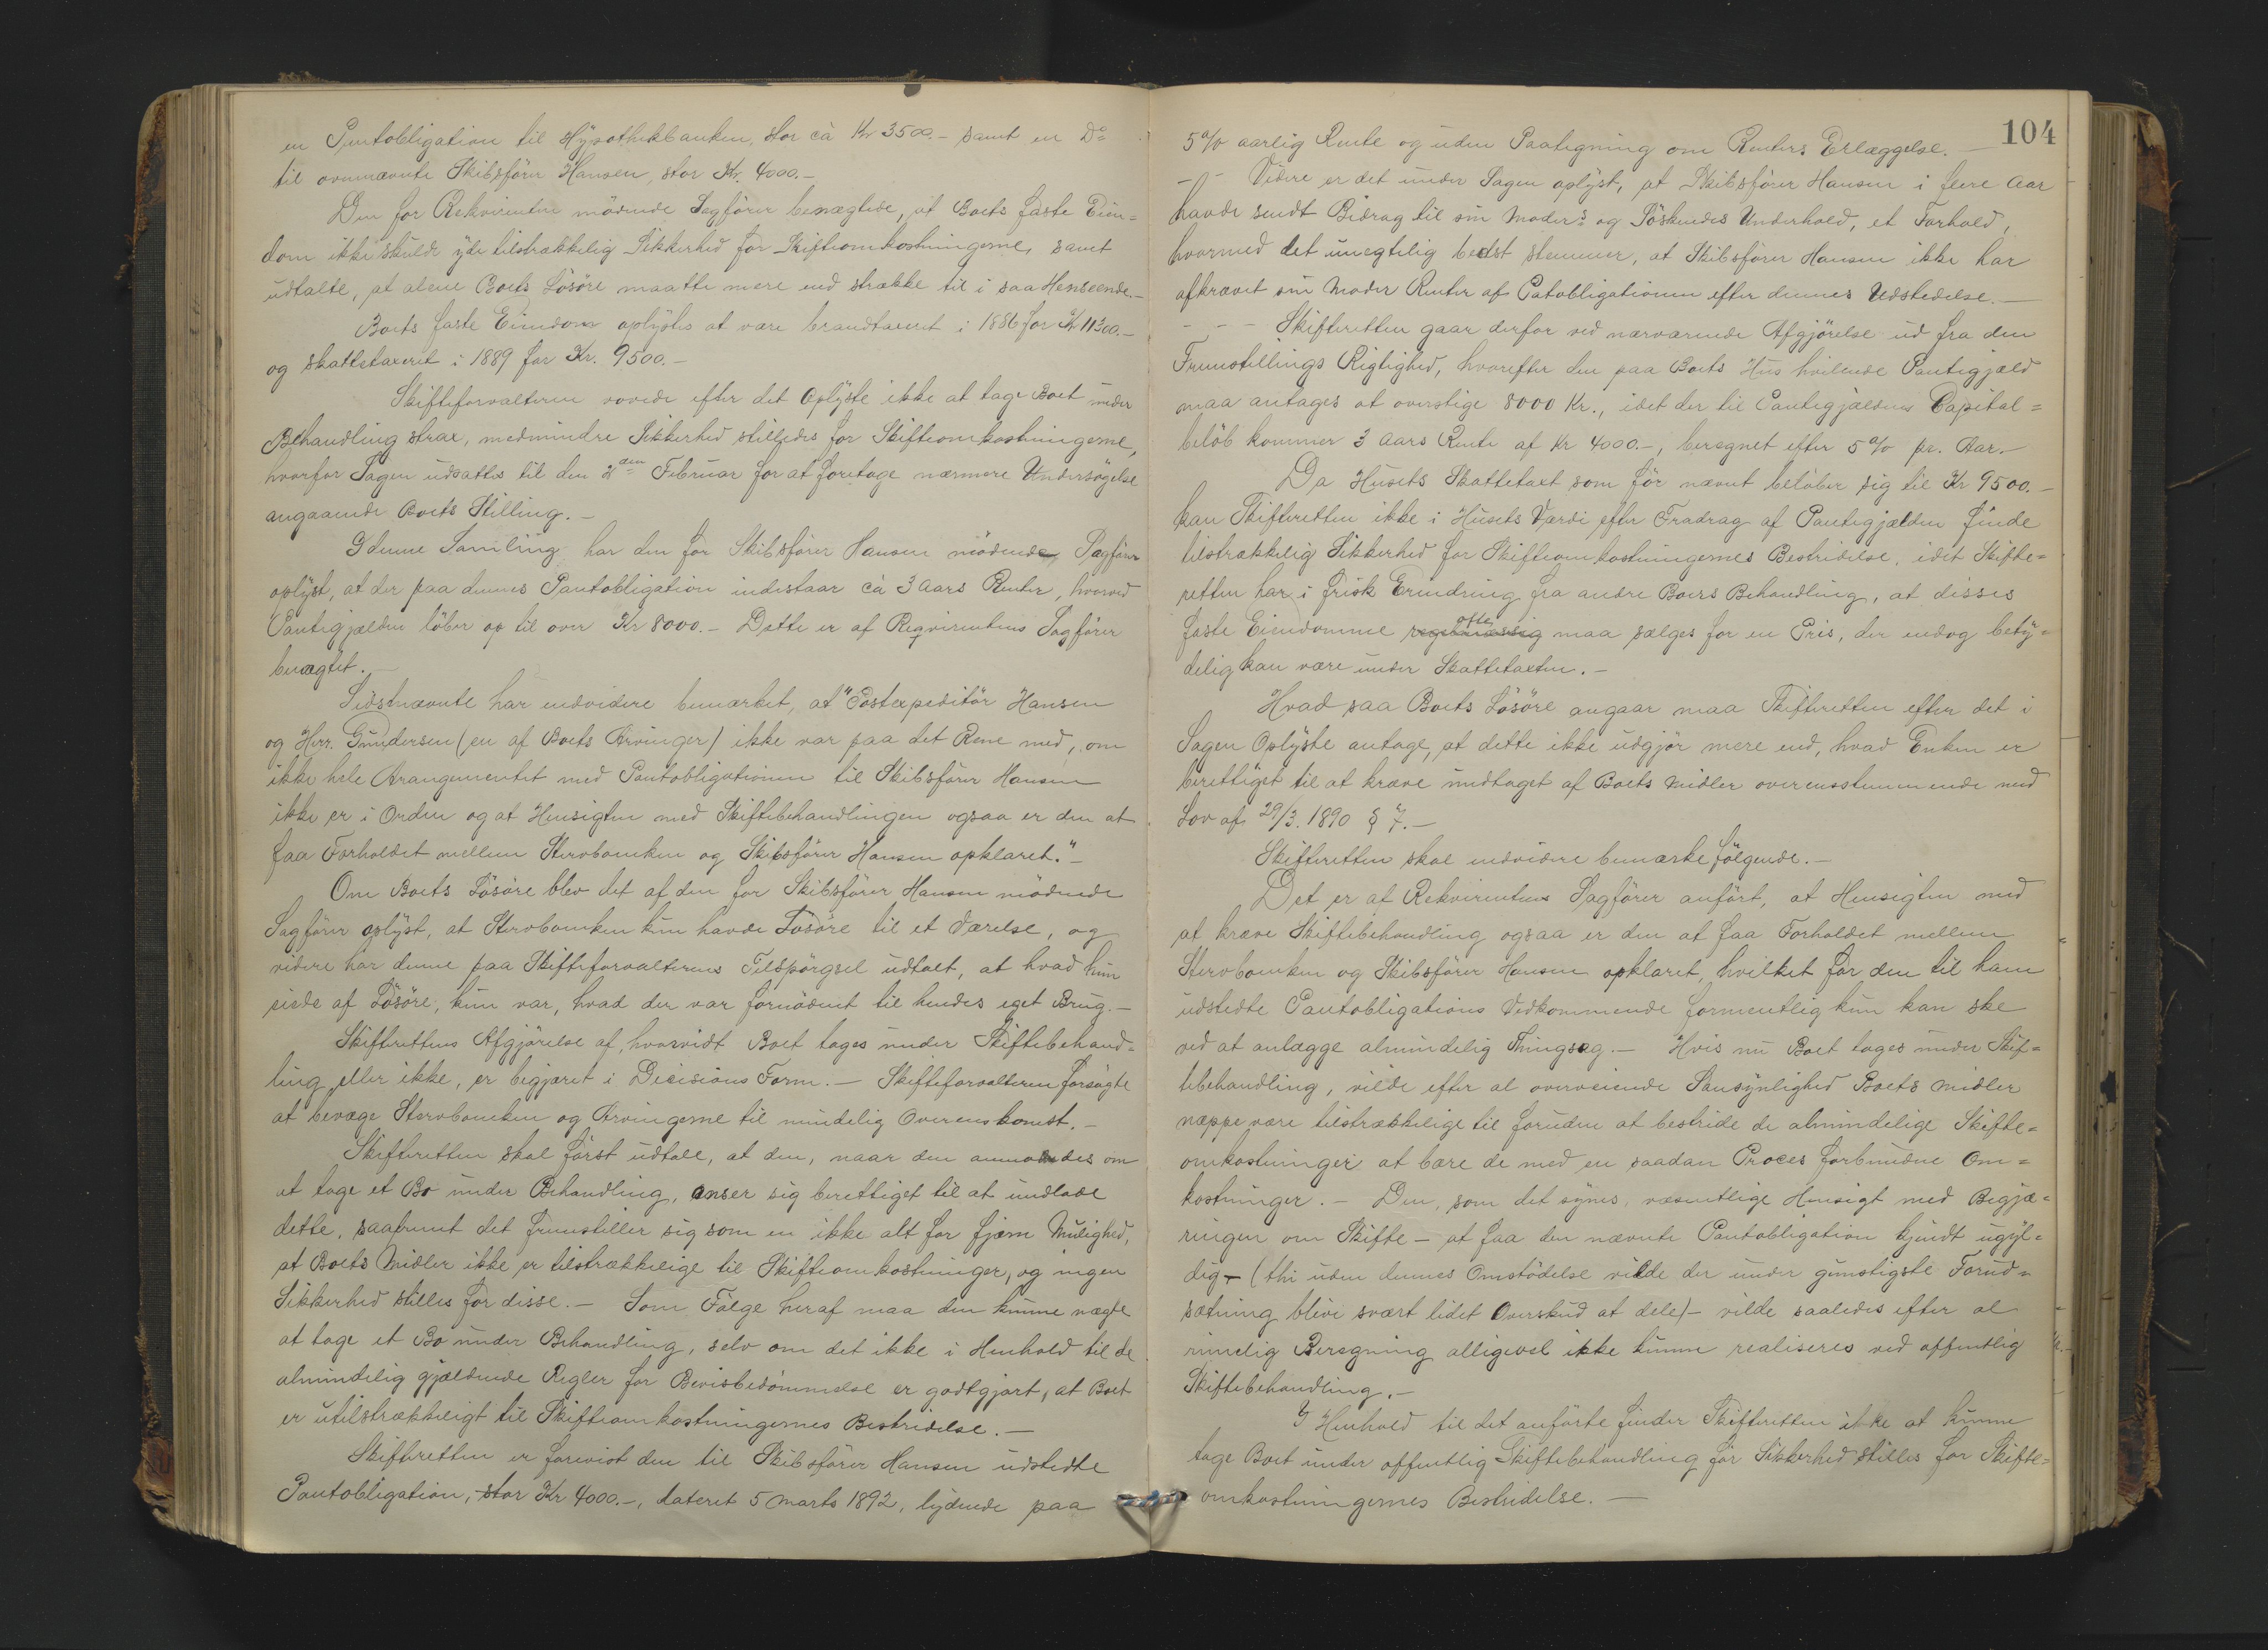 en Pantobligation til Hypothekbanken, stor cà Kr 3500.- samt en Do
til ovennævnte Skibsfører Hansen, stor Kr. 4000.-
Den for Rekvirenten mødende Sagfører benægtede, at Boets faste Eien=
dom ikke skulde yde tilstrækkelig Sikkerhed for Skifteomkostningerne, samt
udtalte, at alene Boets Løsøre maatte mere end strække til i saa Henseende.-
Boets faste Eiendom oplystes at være brandtaxeret i 1886 for Kr 11300.-
og skattetaxeret i 1889 for Kr. 9500.-
Skifteforvalteren vovede efter det Oplyste ikke at tage Boet under
Behandling strax, medmindre Sikkerhed stilledes for Skifteomkostningerne,
hvorfor Sagen udsattes til den 2den Februar for at foretage nærmere Undersøgelse
angaaende Boets Stilling.-
I denne Samling har den for Skibsfører Hansen mødende Sagfører
oplyst, at der paa dennes Pantobligation indestaar cà 3 Aars Renter, hvorved
Pantegjælden løber op til over Kr 8000.- Dette er af Reqvirentens Sagfører
benægtet.-
Sidstnævnte har endvidere bemærket, at "Postexpeditør Hansen
og Herr. Gundersen (en af Boets Arvinger) ikke var paa det Rene med, om
ikke hele Arangementet med Pantobligationen til Skibsfører Hansen
ikke er i Orden og at Hensigten med Skiftebehandlingen ogsaa er den at
faa Forholdet mellem Stervboenken og Skibsfører Hansen opklaret."-
Om Boets Løsøre blev det af den for Skibsfører Hansen mødende
Sagfører oplyst, at Stervboenken kun havde Løsøre til et Værelse, og
videre har denne paa Skifteforvalterens Tilspørgsel udtalt, at hvad hun
eiede af Løsøre, kun var, hvad der var fornødent til hendes eget Brug.-
Skifterettens Afgjørelse af, hvorvidt Boet tages under Skiftebehand=
ling eller ikke, er begjæret i Decisions Form.- Skifteforvalteren forsøgte
at bevæge Stervboenken og Arvingerne til mindelig Overenskomst.-
Skifteretten skal først udtale, at den, naar den anmodes om
at tage et Bo under Behandling, anser sig berettiget til at undlade
dette, saafremt det fremstiller sig som en ikke alt for fjern Mulighed,
at Boets Midler ikke er tilstrækkelige til Skifteomkostninger, og ingen
Sikkerhed stilles for disse.- Som Følge heraf maa den kunne nægte
at tage et Bo under Behandling, selv om det ikke i Henhold til de
almindelig gjældende Regler for Bevisbedømmelse er godtgjort, at Boet
er utilstrækkeligt til Skifteomkostningernes Bestridelse.-
Skifteretten er forevist den til Skibsfører Hansen udstedte
Pantobligation, stor Kr 4000.-, dateret 5 Marts 1892, lydende paa
104
5 % aarlig Rente og uden Paategning om Renters Erlæggelse.-
- - Videre er det under Sagen oplyst, at Skibsfører Hansen i flere Aar
havde sendt Bidrag til sin Moders og Søskendes Underhold, et Forhold,
hvormed det unegtelig bedst stemmer, at Skibsfører Hansen ikke har
afkrævet sin Moder Renter af Patobligationen efter dennes Udstedelse.-
- - - Skifteretten gaar derfor ved nærværende Afgjørelse ud fra den
Fremstillings Rigtighed, hvorefter den paa Boets Hus hvilende Pantegjæld
maa antages at overstige 8000 Kr., idet der til Pantegjældens Capital=
beløb kommer 3 Aars Rente af Kr 4000.-, beregnet efter 5 % pr. Aar.-
Da Husets Skattetaxt som før nævnt beløber sig til Kr 9500.-
kan Skifteretten ikke i Husets Værdi efter Fradrag af Pantegjælden finde
tilstrækkelig Sikkerhed for Skifteomkostningernes Bestridelse, idet Skifte=
retten har i frisk Erindring fra andre Boers Behandling, at disses
faste Eiendomme regelmæssig ofte maa sælges for en Pris, der endog bety=
delig kan være under Skattetaxten.-
Hvad saa Boets Løsøre angaar maa Skifteretten efter det i
Sagen Oplyste antage, at dette ikke udgjør mere end, hvad Enken er
berettiget til at kræve undtaget af Boets Midler overensstemmende med
Lov af 29/3. 1890 § 7.-
Skifteretten skal endvidere bemærke følgende.-
Det er af Rekvirentens Sagfører anført, at Hensigten med
at kræve Skiftebehandling ogsaa er den at faa Forholdet mellem
Stervboenken og Skibsfører Hansen opklaret, hvilket for den til ham
udstedte Pantobligations Vedkommende formentlig kun kan ske
ved at anlægge almindelig Thingsag.- Hvis nu Boet tages under Skif=
tebehandling, vilde efter al overveiende Sansynlighed Boets Midler
næppe være tilstrækkelige til foruden at bestride de almindelige Skifte=
omkostninger at bære de med en saadan Proces forbundne Om=
kostninger.- Den, som det synes, væsentlige Hensigt med Begjæ=
ringen om Skifte - at faa den nævnte Pantobligation kjendt ugyl=
dig - (thi uden dennes Omstødelse vilde der under gunstigste Forud=
sætning blive svært lidet Overskud at dele) - vilde saaledes efter al
rimelig Beregning alligevel ikke kunne realiseres ved offentlig
Skiftebehandling.-
I Henhold til det anførte finder Skifteretten ikke at kunne
tage Boet under offentlig Skiftebehandling før Sikkerhed stilles for Skifte=
omkostningernes Bestridelse.-